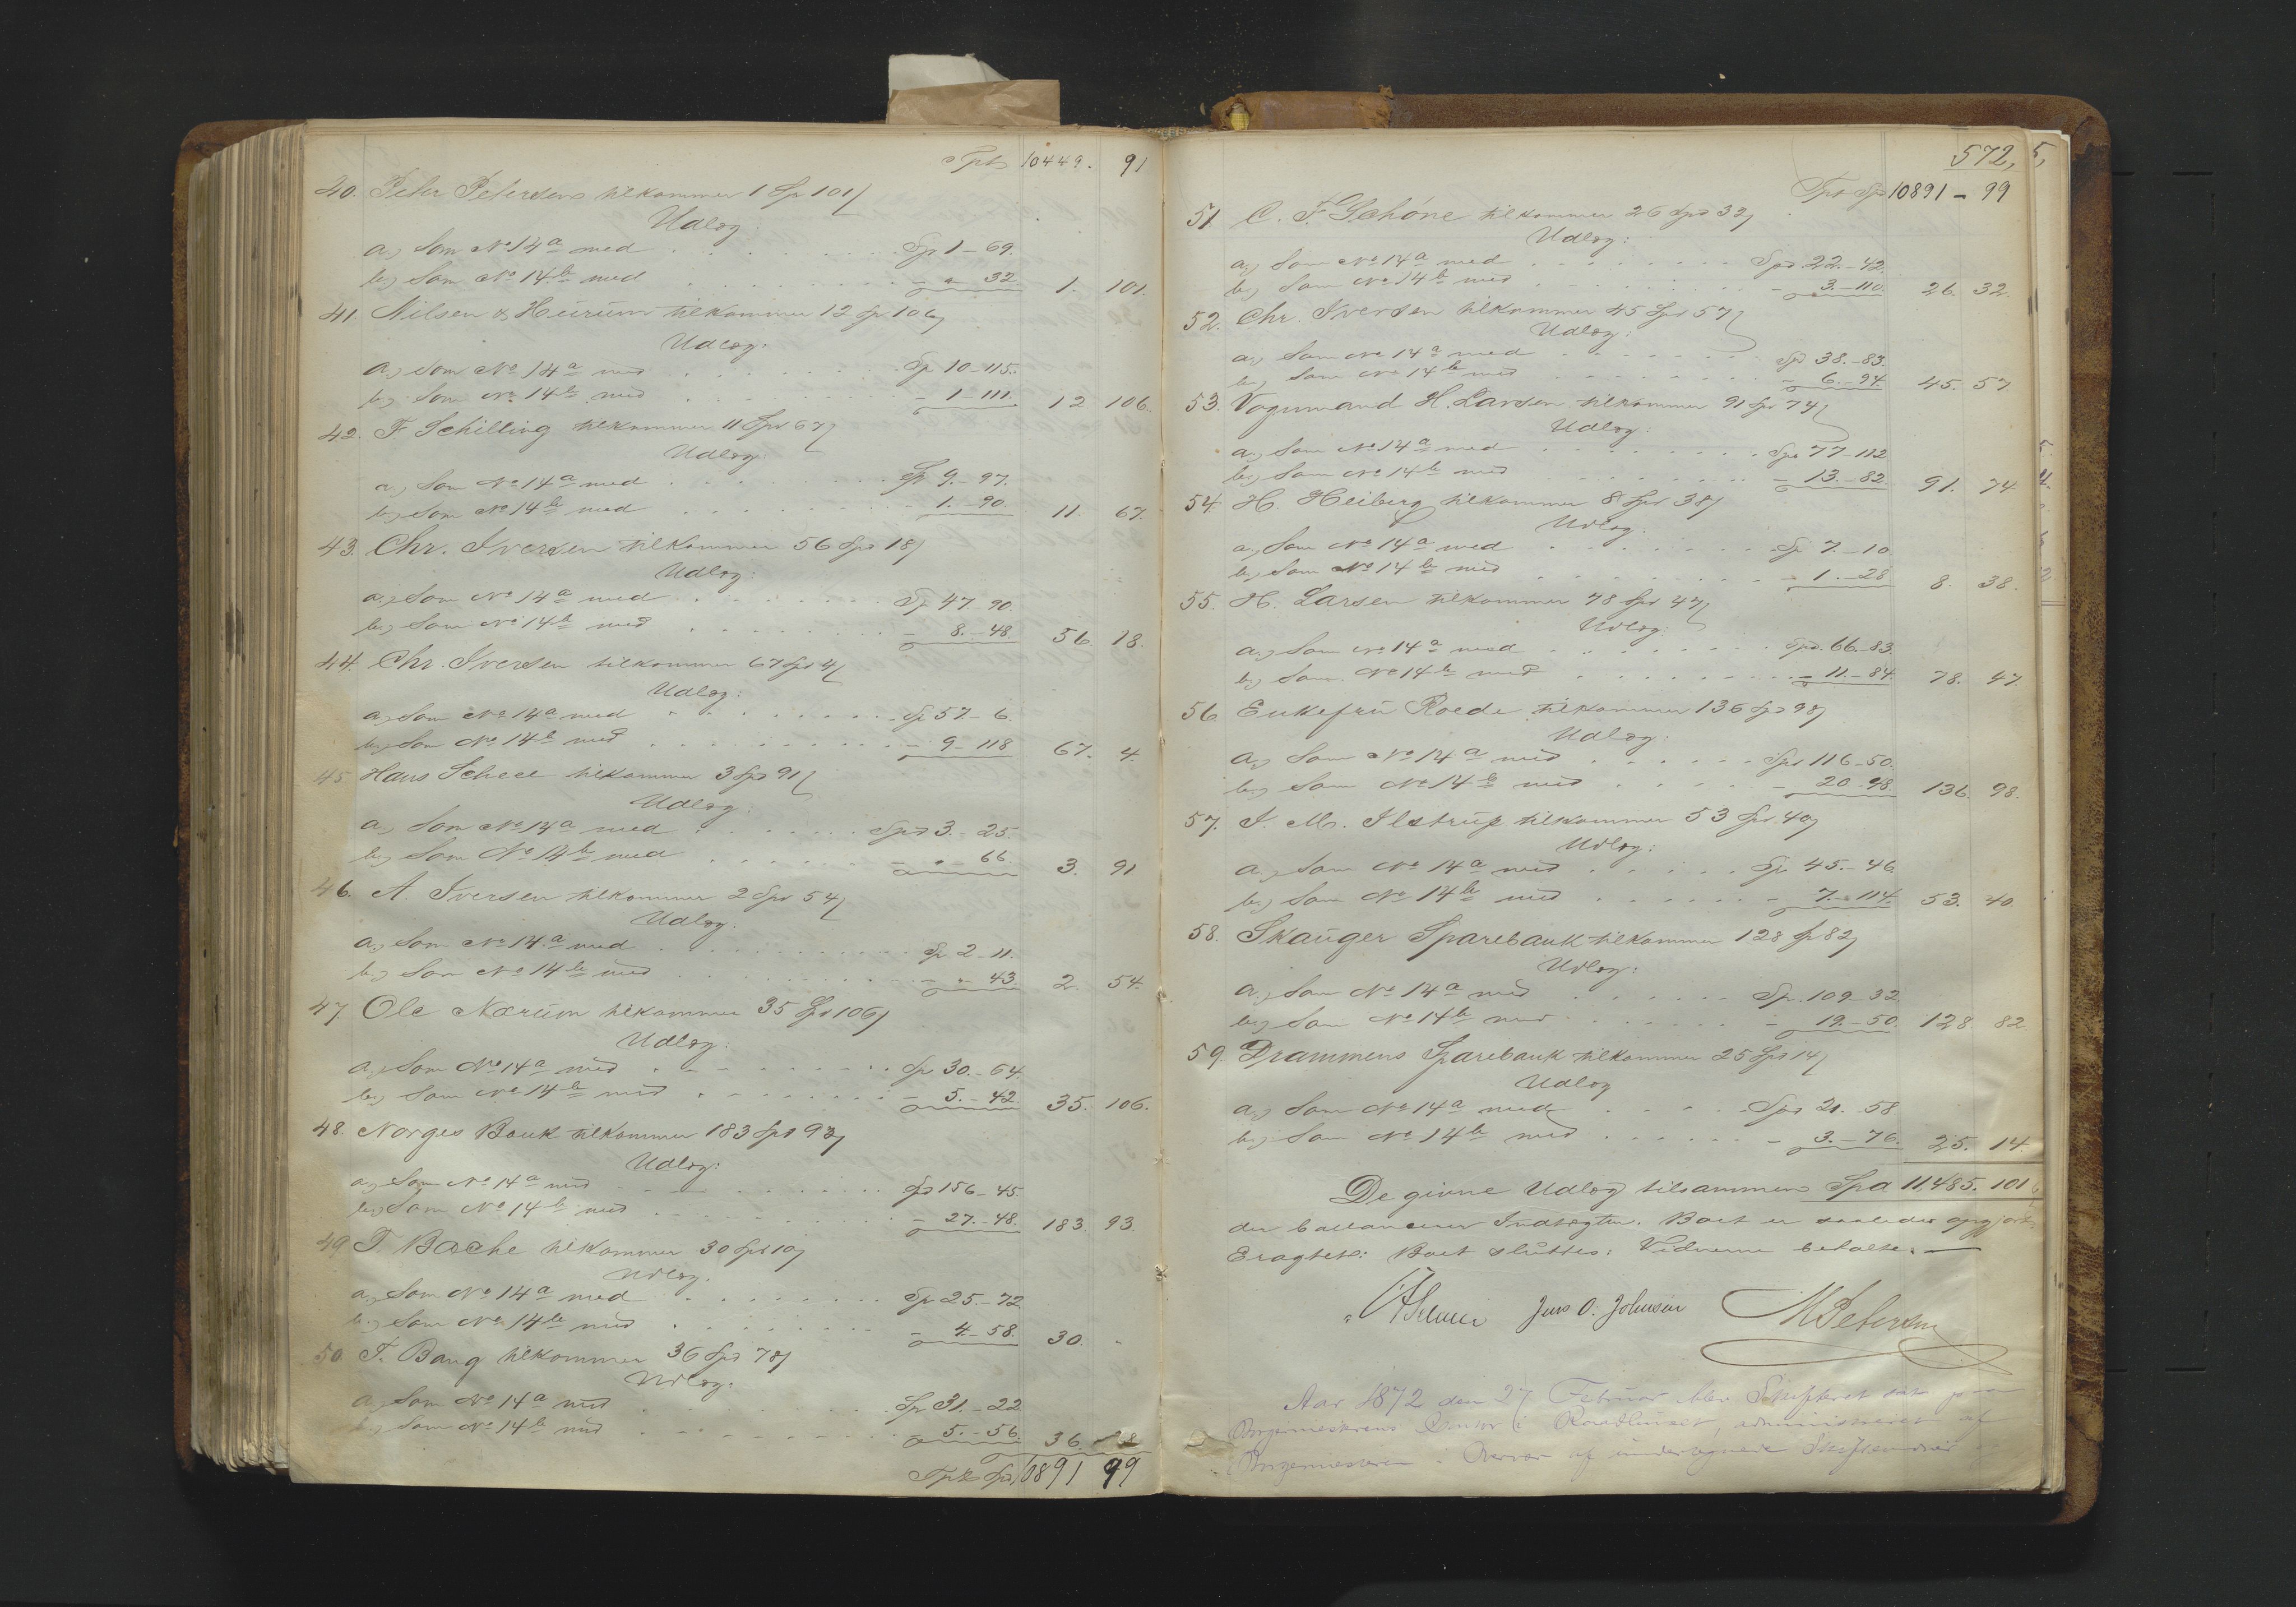 Tpt 10449. 91
40. Peter Petersens tilkommer 1 Sp 101/
Udlæg
a., Som No 14a med Sp 1-69.
b., Som No 14b med - " 32 1. 101.
41. Nilsen & Heurum tilkommer 12 Sp 106/
Udlæg:
a., Som No 14a med Sp 10-115.
b., Som No 14b med - 1-111. 12 106.
42. F Schilling tilkommer 11 Spd 67/
Udlæg
a., Som No 14a med Sp 9.-97.
b., Som No 14b med - 1.-90. 11. 67.
43. Chr. Iversen tilkommer 56 Spd 18/
Udlæg:
a., Som No 14a med Sp 47-90.
b., Som No 14b med - 8.-48. 56. 18.
44. Chr. Iversen tilkommer 67 Spd 4/
Udlæg:
a., Som No 14a med Sp 57-6.
b., Som No 14b med - 9-118 67. 4.
45 Hans Scheel tilkommer 3 Spd 91/
Udlæg:
a., Som No 14a med Spd 3.-25.
b., Som No 14b med - " - 66. 3. 91
46. A. Iversen tilkommer 2 Spd 54/
Udlæg.
a., Som No 14a med Sp 2-11.
b., Som No 14b med - " - 43. 2. 54.
47. Ole Nærum tilkommer 35 Spd 106/
Udlæg:
a., Som No 14a med Sp 30.-64.
b., Som No 14b med - 5.-42. 35. 106.
48. Norges Bank tilkommer 183 Spd 93/
Udlæg:
a., Som No 14a med Spd 156-45.
b., Som No 14b med - 27.-48. 183. 93.
49 T. Bache tilkommer 30 Spd 10/
Udlæg.
a., Som No 14a med Sp 25.-72.
b., Som No 14b med - 4.-58. 30. -
50. T. Bang tilkommer 36 Spd 78/
Udlæg:
a., Som No 14a med Sp 31.-22
b., Som No 14b med - 5.-56. 36. 78
Tpt Spd 10891 99
572,
Tpt Sp 10891 - 99
51. C. F. Schöne tilkommer 26 Spd 32/
Udlæg:
a., Som No 14a med Spd 22.-42.
b., Som No 14b med - 3.-110. 26. 32.
52. Chr. Iversen tilkommer 45 Spd 57/
Udlæg:
a., Som No 14a med Spd 38.-83.
b., Som No 14b med - 6.-94. 45. 57.
53. Vognmand H. Larsen tilkommer 91 Spd 74/
Udlæg:
a., Som No 14a med Spd 77-112
b., Som No 14b med - 13.-82 91. 74
54. H. Heiberg tilkommer 8 Spd 38/
Udlæg.
a., Som No 14a med Sp 7.-10
b., Som No 14b med - 1.-28 8. 38.
55. H. Larsen tilkommer 78 Spd 47/
Udlæg:
a., Som No 14a med Spd. 66.-83.
b., Som No 14b med - 11.-84. 78. 47.
56 Enkefru Roede tilkommer 136 Spd 98/
Udlæg:
a., Som No 14a med Spd 116-50.
b., Som No 14b med - 20-48. 136. 98.
57. I. M. Ilstrup tilkommer 53 Spd 40/
Udlæg:
a., Som No 14a med Sp 45.-46
b., Som No 14b med - 7.-114. 53. 40.
58. Skauger Sparebank tilkommer 128 Sp 82/
Udlæg:
a., Som No 14a med Sp. 109-32
b., Som No 14b med - 19.-50. 128 82.
59. Drammens Sparebank tilkommer 25 Spd 14/
Udlæg
a., Som No 14a med Spd 21.-58
b., Som No 14b med - 3.-76. 25. 14.
De givne Udlæg tilsammen Spd 11,485. 101
der ballancerer Indtægten. Boet er saaledes opgjort.
Eragtet: Boet sluttes: Vidnerne betalte. —
Jens O. Johnsen M Petersen
Aar 1872 den 27 Februar blev Skifteret sat paa
Borgermesterens Contor i Raadhuset, administreret af
Borgermesteren i Nærvær af undertegnede